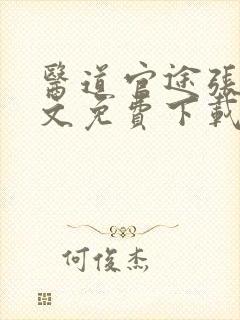 醫道官途張
文免費下載
何俊杰